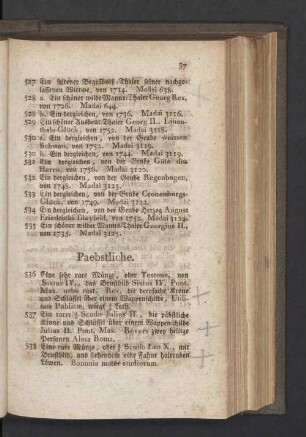 37
527 Ein schöner Begräbniß-Thaler seiner nachge-
lassenen Wittwe, von 1714. Madai 638.
528 a. Ein schöner wilde Manns Thaler Georg Rex,
von 1726. Madai 644.
528 b. Ein dergleichen, von 1736. Madai 3116.
529 Ein schöner Ausbeut-Thaler Georg II. Lauten-
thals-Glück, von 1752. Madai 3118.
530 a. Ein dergleichen, von der Grube weissen
Schwan, von 1752. Madai 3119.
530 b. Ein dergleichen, von 1744. Madai 3119.
531 Ein dergleichen, von der Grube Güte des
Herrn, von 1756. Madai 3120.
532 Ein dergleichen, von der Grube Regenbogen,
von 1748. Madai 3121.
533 Ein dergleichen, von der Grube Cronenburgs-
Glück, von 1749. Madai 3122.
534 Ein dergleichen, von der Grube Herzog August
Friedrichs Bleyfeld, von 1752. Madai 3124.
535 Ein schöner wilder Manns Thaler Georgius II.,
von 1735. Madai 3125.
Paebstliche.
536 Eine sehr rare Münze, oder Testone, von
Sixtus IV., das Brustbild Sixtus IV. Pont.
Max. urbe rest. Rev. die dreyfache Krone
und Schlüssel über einem Wappenschilde,
Publicæ, wiegt Loth.
537 Ein rarer Scudo Julius II., die päbstliche
Krone und Schlüssel über einem Wappenschilde
Julius II. Pont. Max. Revers zwey heilige
Personen Alma Roma.
538 Eine rare Münze, oder Scudo Leo X., mit
Brustbild, und stehendem eine Fahne haltenden
Löwen. Bononia mater studiorum.